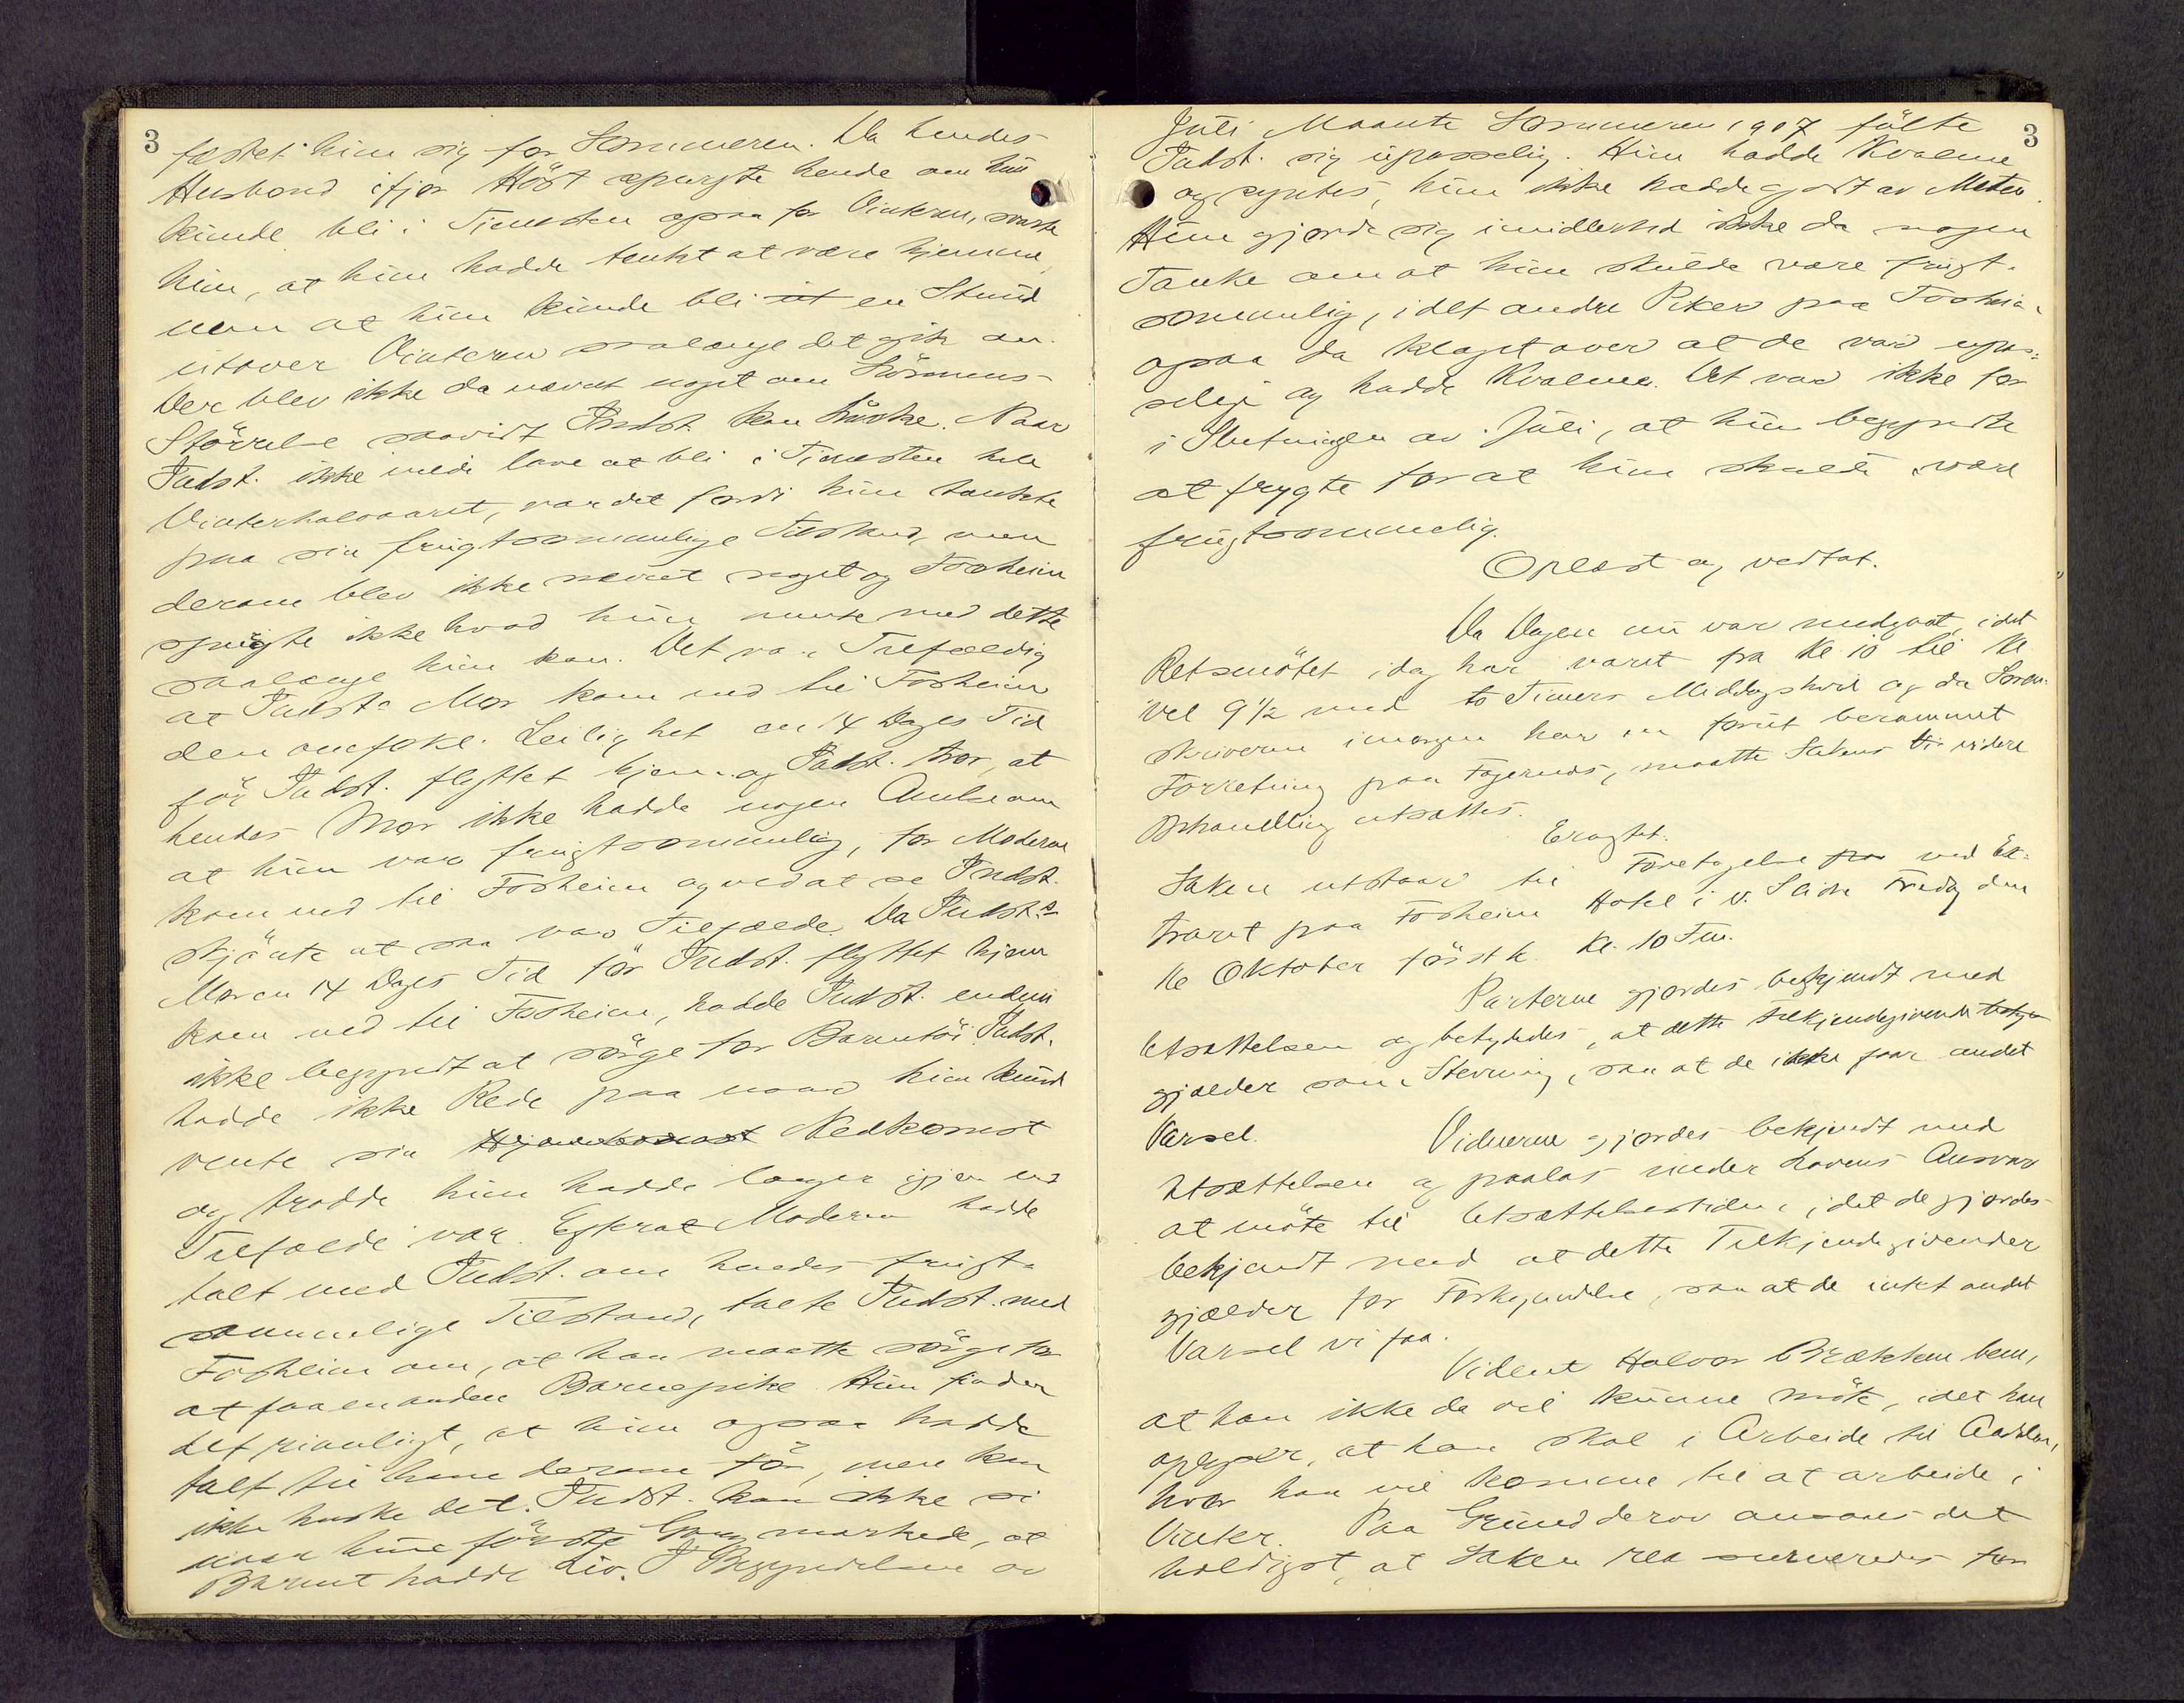 3
fæstet hun sig for Sommeren. Da hendes
Husbond ifjor Höst spurgte hende om hun
kunde bli i Tienesten ogsaa for Vinteren, svarte
hun, at hun hadde tænkt at være hjemme,
men at hun kunde bli ut en Stund
utover Vinteren saalænge det gik an.
Der blev ikke da nævnt noget om Lönnens
Störrelse saavidt Indst. kan huske. Naar
Indst. ikke vilde love at bli i Tienesten hele
Vinterhalvaaret, var det fordi hun tænkte
paa sin frugtsommelige Tilstand, men
derom blev ikke nævnt noget og Fosheim
spurgte ikke hvad hun mente med dette
saalænge hun kan. Det var Tilfældig
at Indst.s Mor kom ned til Fosheim
den omfokl. Leilighet en 14 Dages Tid
för Indst. flyttet hjem og Indst. tror, at
hendes Mor ikke hadde nogen Anelse om
at hun var frugtsommelig, för Moderen
kom ned til Fosheim og ved at se Indst.
skjönte at saa var Tilfælde. Da Indst.s
Mor en 14 Dages Tid för Indst. flyttet hjem
kom ned til Fosheim, hadde Indst. endnu
ikke begyndt at sörge for Barnetöi. Indst.
hadde ikke Rede paa naar hun kunde
vente sin Nedkomst
og trodde hun hadde længer igjen end
Tilfælde var. Efterat Moderen hadde
talt med Indst. om hendes frugt-
sommelige Tilstand, talte Indst. med
Fosheim om, at han maatte sörge for
at faa en anden Barnepike. Hun finder
det rimeligt, at hun ogsaa hadde
talt til ham derom för, men kan
ikke huske det. Indst. kan ikke si
naar hun förste Gang markede, at
Barnet hadde Liv. I Begyndelsen av
3
Juli Maaned Sommeren 1907 fölte
Indst. sig upasselig. Hun hadde Kvalme
og syntes, hun ikke hadde godt av Maten.
Hun gjorde sig imidlertid ikke da nogen
Tanke om at hun skulde være frugt-
sommelig, idet andre Piker paa Fosheim
ogsaa da klaget over at de var upas-
selige og hadde Kvalme. Det var ikke för
i Slutningen av Juli, at hun begyndte
at frygte for at hun skulde være
frugtsommelig.
Oplæst og vedtat.
Da Dagen nu var medgaat, idet
Retsmötet idag har varet fra Kl 10 til Kl
vel 9 1/2 med to Timers Middagshvil og da Soren-
skriveren imorgen har en forut berammet
Forretning paa Fagernes, maatte Sakens videre
Behandling utsættes.
Eragtet.
Saken utstaar til Foretagelse paa ved Ek-
traret paa Fosheim Hotel i V. Slidre Fredag den
16 Oktober förstk. Kl. 10 Fm.
Parterne gjordes bekjendt med
Utsættelsen og betydedes, at dette Tilkjendegivende
gjælder som Stevning, saa at de ikke faar andet
Varsel.
Vidnerne gjordes bekjendt med
Utsættelsen og paalas under Lovens Ansvar
at möte til Utsættelsestiden, idet de gjordes
bekjendt med at dette Tilkjendegivender
gjælder for Forkyndelse, saa at de intet andet
Varsel vi faa.
Vidnet Halvor Brækken bem,
at han ikke da vil kunne möte, idet han
oplyser, at han skal i Arbeide til Aadalen,
hvor han vil komme til at arbeide i
Vinter. Paa Grund derav ansaas det
heldigst, at Saken for